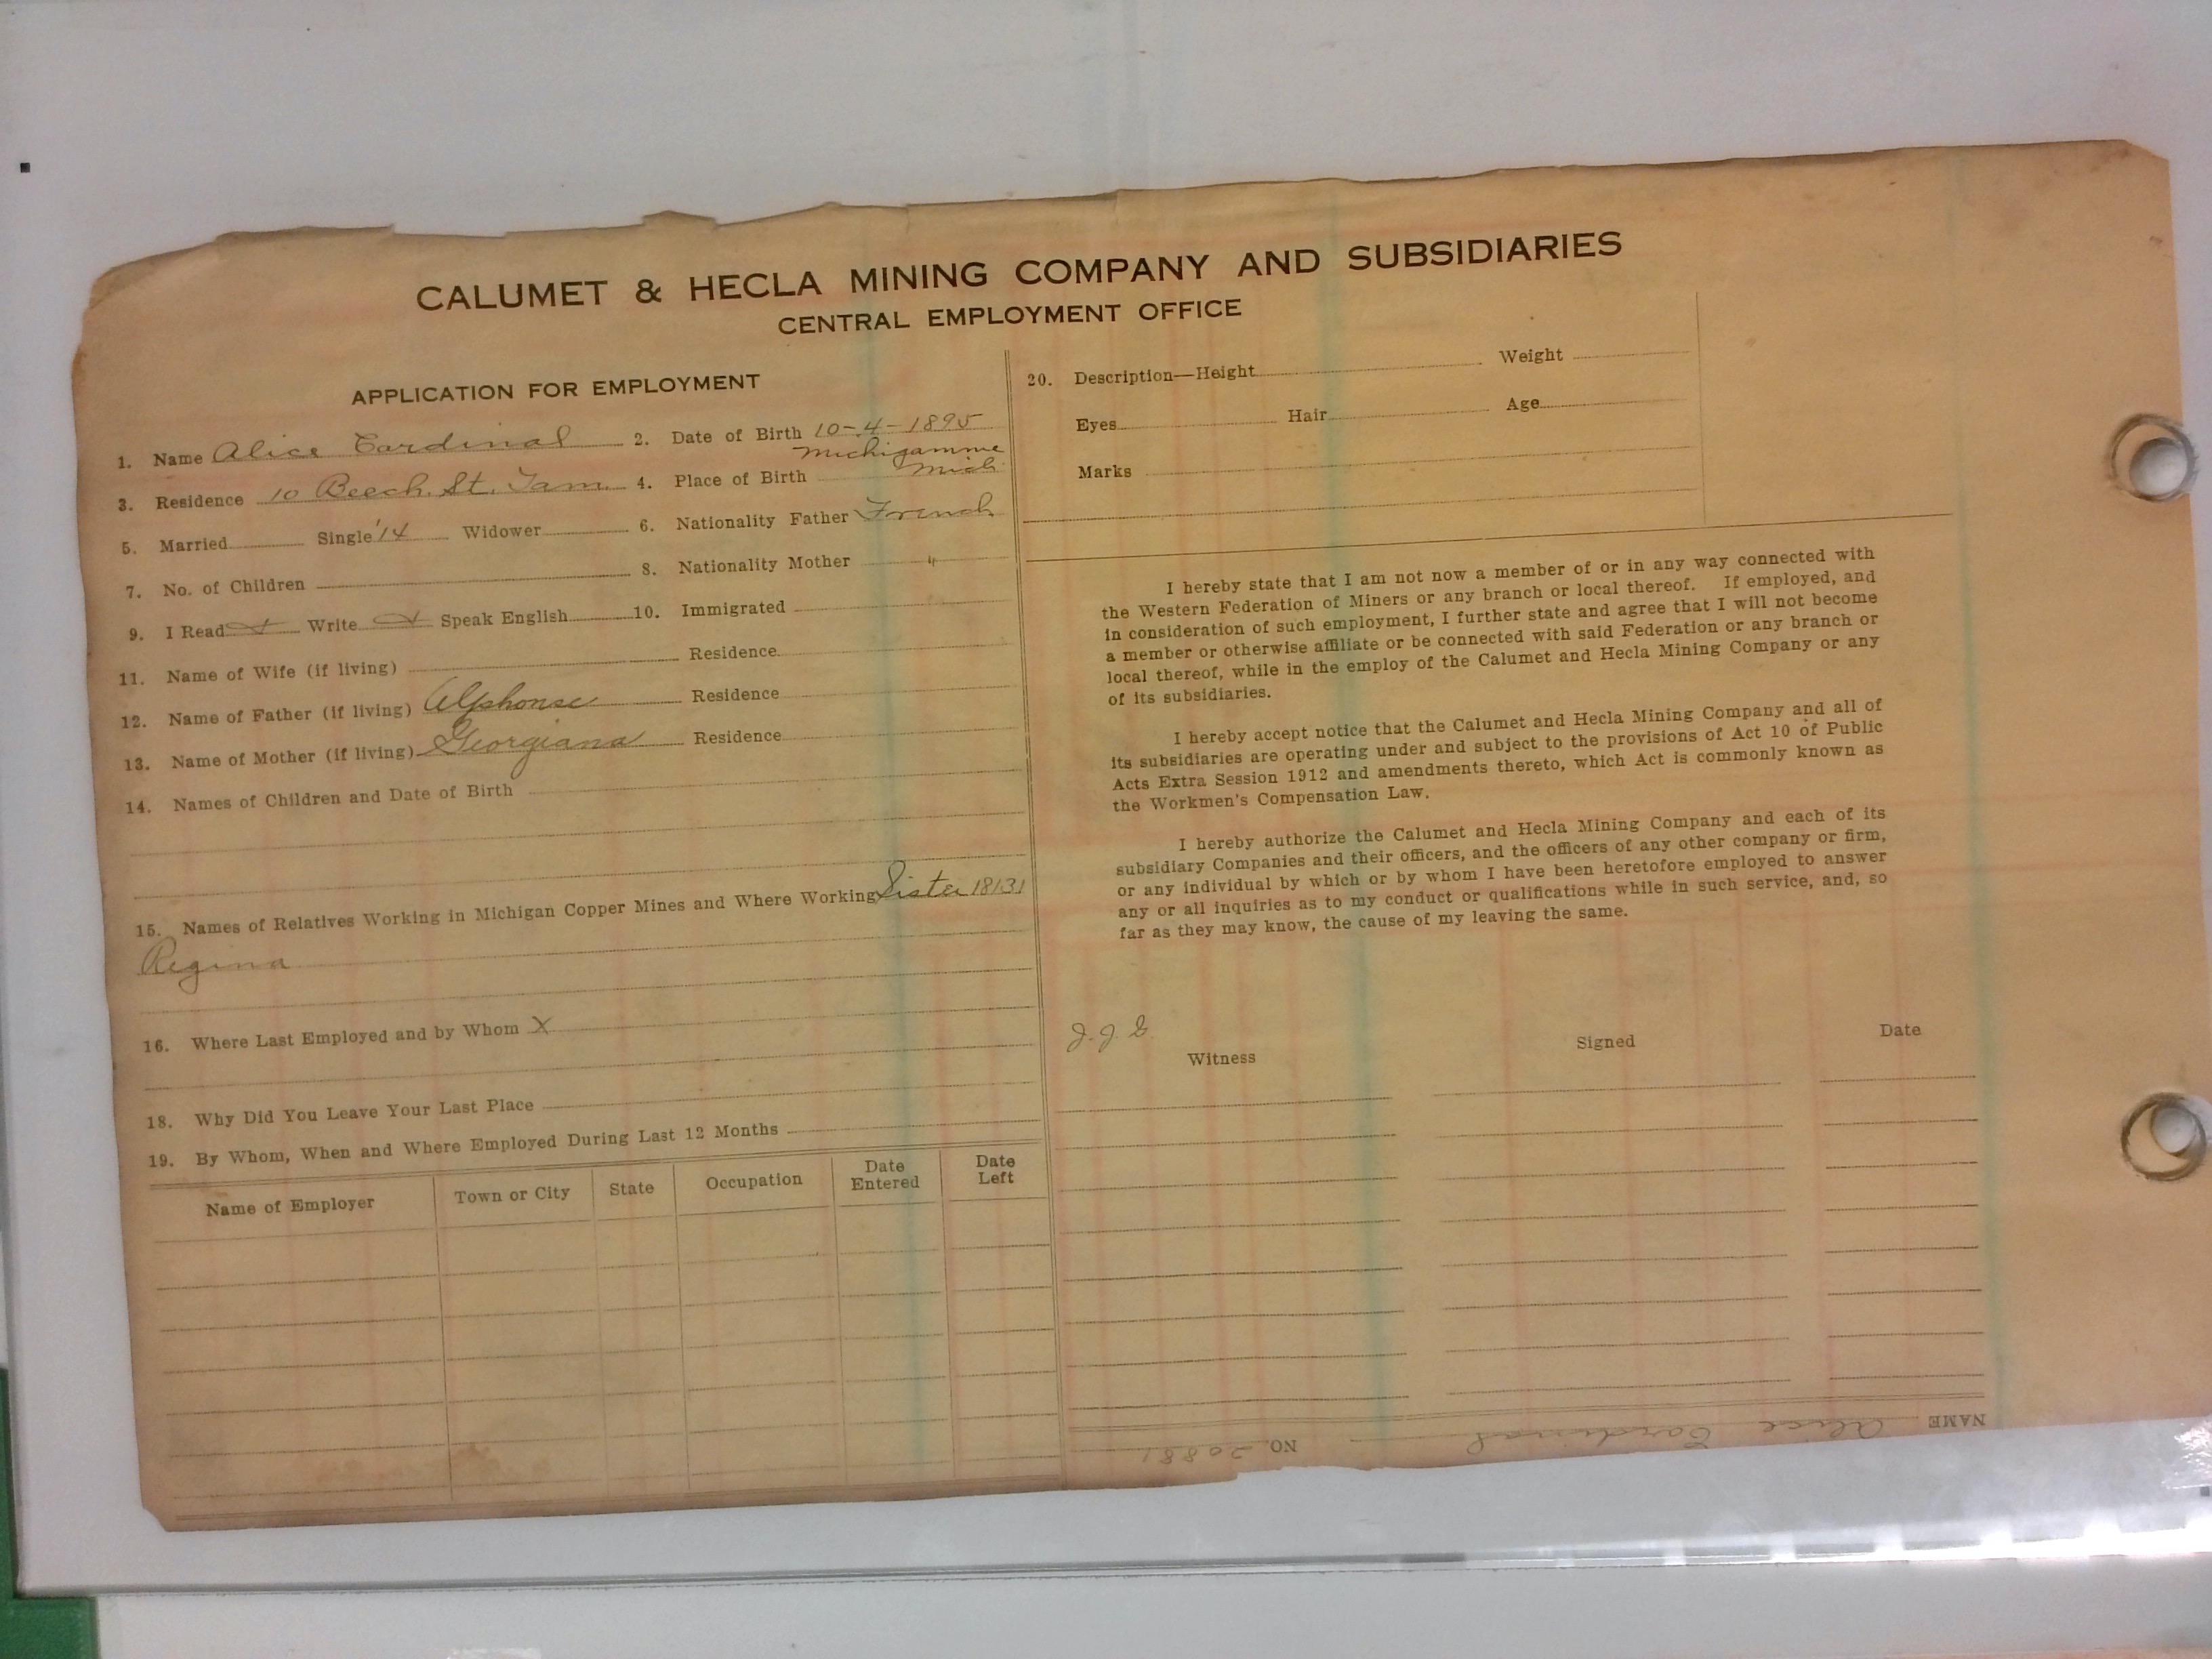 CALUMET & HECLA MINING COMPANY AND SUBSIDIARIES
CENTRAL EMPLOYMENT OFFICE
APPLICATION FOR EMPLOYMENT
1. Name Alice Cardinal 2. Date of Birth 10-4-1895
3. Residence 10 Beech. St. Tam. 4. Place of Birth Michigamme Mich
5. Married Single '14 Widower 6. Nationality Father French
7. No. of Children 8. Nationality Mother "
9. I Read Write Speak English 10. Immigrated
11. Name of Wife (if living) Residence
12. Name of Father (if living) Alphonse Residence
13. Name of Mother (if living) Georgiana Residence
14. Names of Children and Date of Birth
15. Names of Relatives Working in Michigan Copper Mines and Where Working Sister 18131
Regina
16. Where Last Employed and by Whom X
18. Why Did You Leave Your Last Place
19. By Whom, When and Where Employed During Last 12 Months
Name of Employer Town or City State Occupation Date Entered Date Left
20. Description—Height Weight
Eyes Hair Age
Marks
I hereby state that I am not now a member of or in any way connected with
the Western Federation of Miners or any branch or local thereof. If employed, and
in consideration of such employment, I further state and agree that I will not become
a member or otherwise affiliate or be connected with said Federation or any branch or
local thereof, while in the employ of the Calumet and Hecla Mining Company or any
of its subsidiaries.
I hereby accept notice that the Calumet and Hecla Mining Company and all of
its subsidiaries are operating under and subject to the provisions of Act 10 of Public
Acts Extra Session 1912 and amendments thereto, which Act is commonly known as
the Workmen's Compensation Law.
I hereby authorize the Calumet and Hecla Mining Company and each of its
subsidiary Companies and their officers, and the officers of any other company or firm,
or any individual by which or by whom I have been heretofore employed to answer
any or all inquiries as to my conduct or qualifications while in such service, and, so
far as they may know, the cause of my leaving the same.
J. J. G.
Witness Signed Date
NAME Alice Cardinal NO. 20881